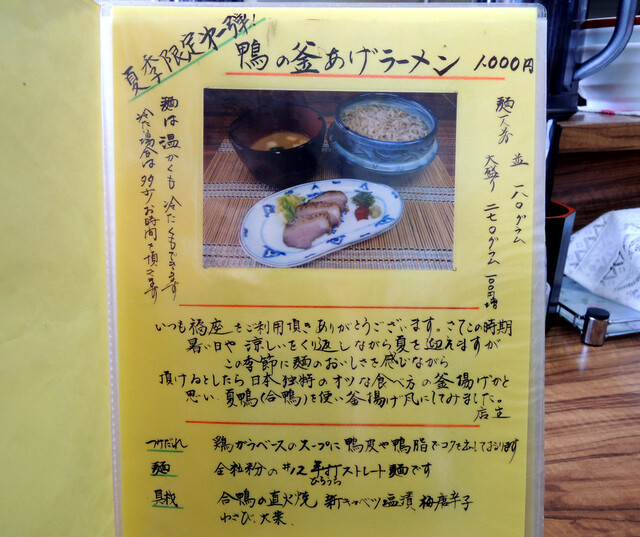 夏季限定第一弾!
鴨の釜あげラーメン 1,000円
麺量 並 一八〇グラム
大盛り 二七〇グラム 一〇〇円増
麺は温かくも冷たくもできます
冷たい場合は多少お時間を頂きます
いつも福座をご利用頂きありがとうございます。さてこの時期
暑い日や涼しいをくり返しながら夏を迎えますが
この季節に麺のおいしさを感じながら
頂けるとしたら日本独特のオツな食べ方の釜揚げかと
思い、夏鴨(合鴨)を使い釜揚げ風にしてみました。
店主
つけだれ 鶏ガラベースのスープに鴨皮や鴨脂でコクを出しております
麺 全粒粉の#12 平打ストレート麺です
ひらうち
具材 合鴨の直火焼 新キャベツ塩漬 梅唐辛子
わさび、大葉、